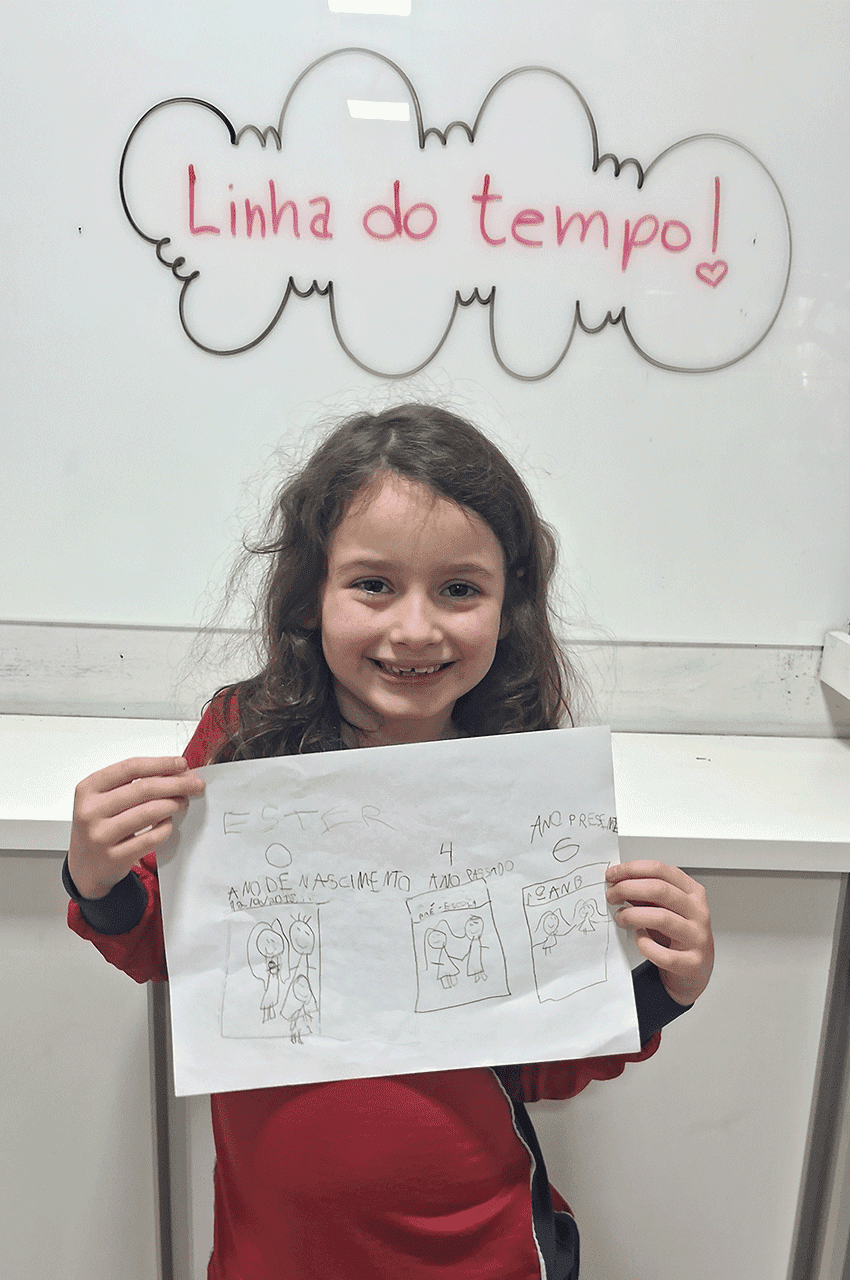 Linha do tempo!
ESTER
0
ANO DE NASCIMENTO
4
ANO PASSADO
PRÉ-ESCOLA
ANO PRESENTE
6
1º ANB